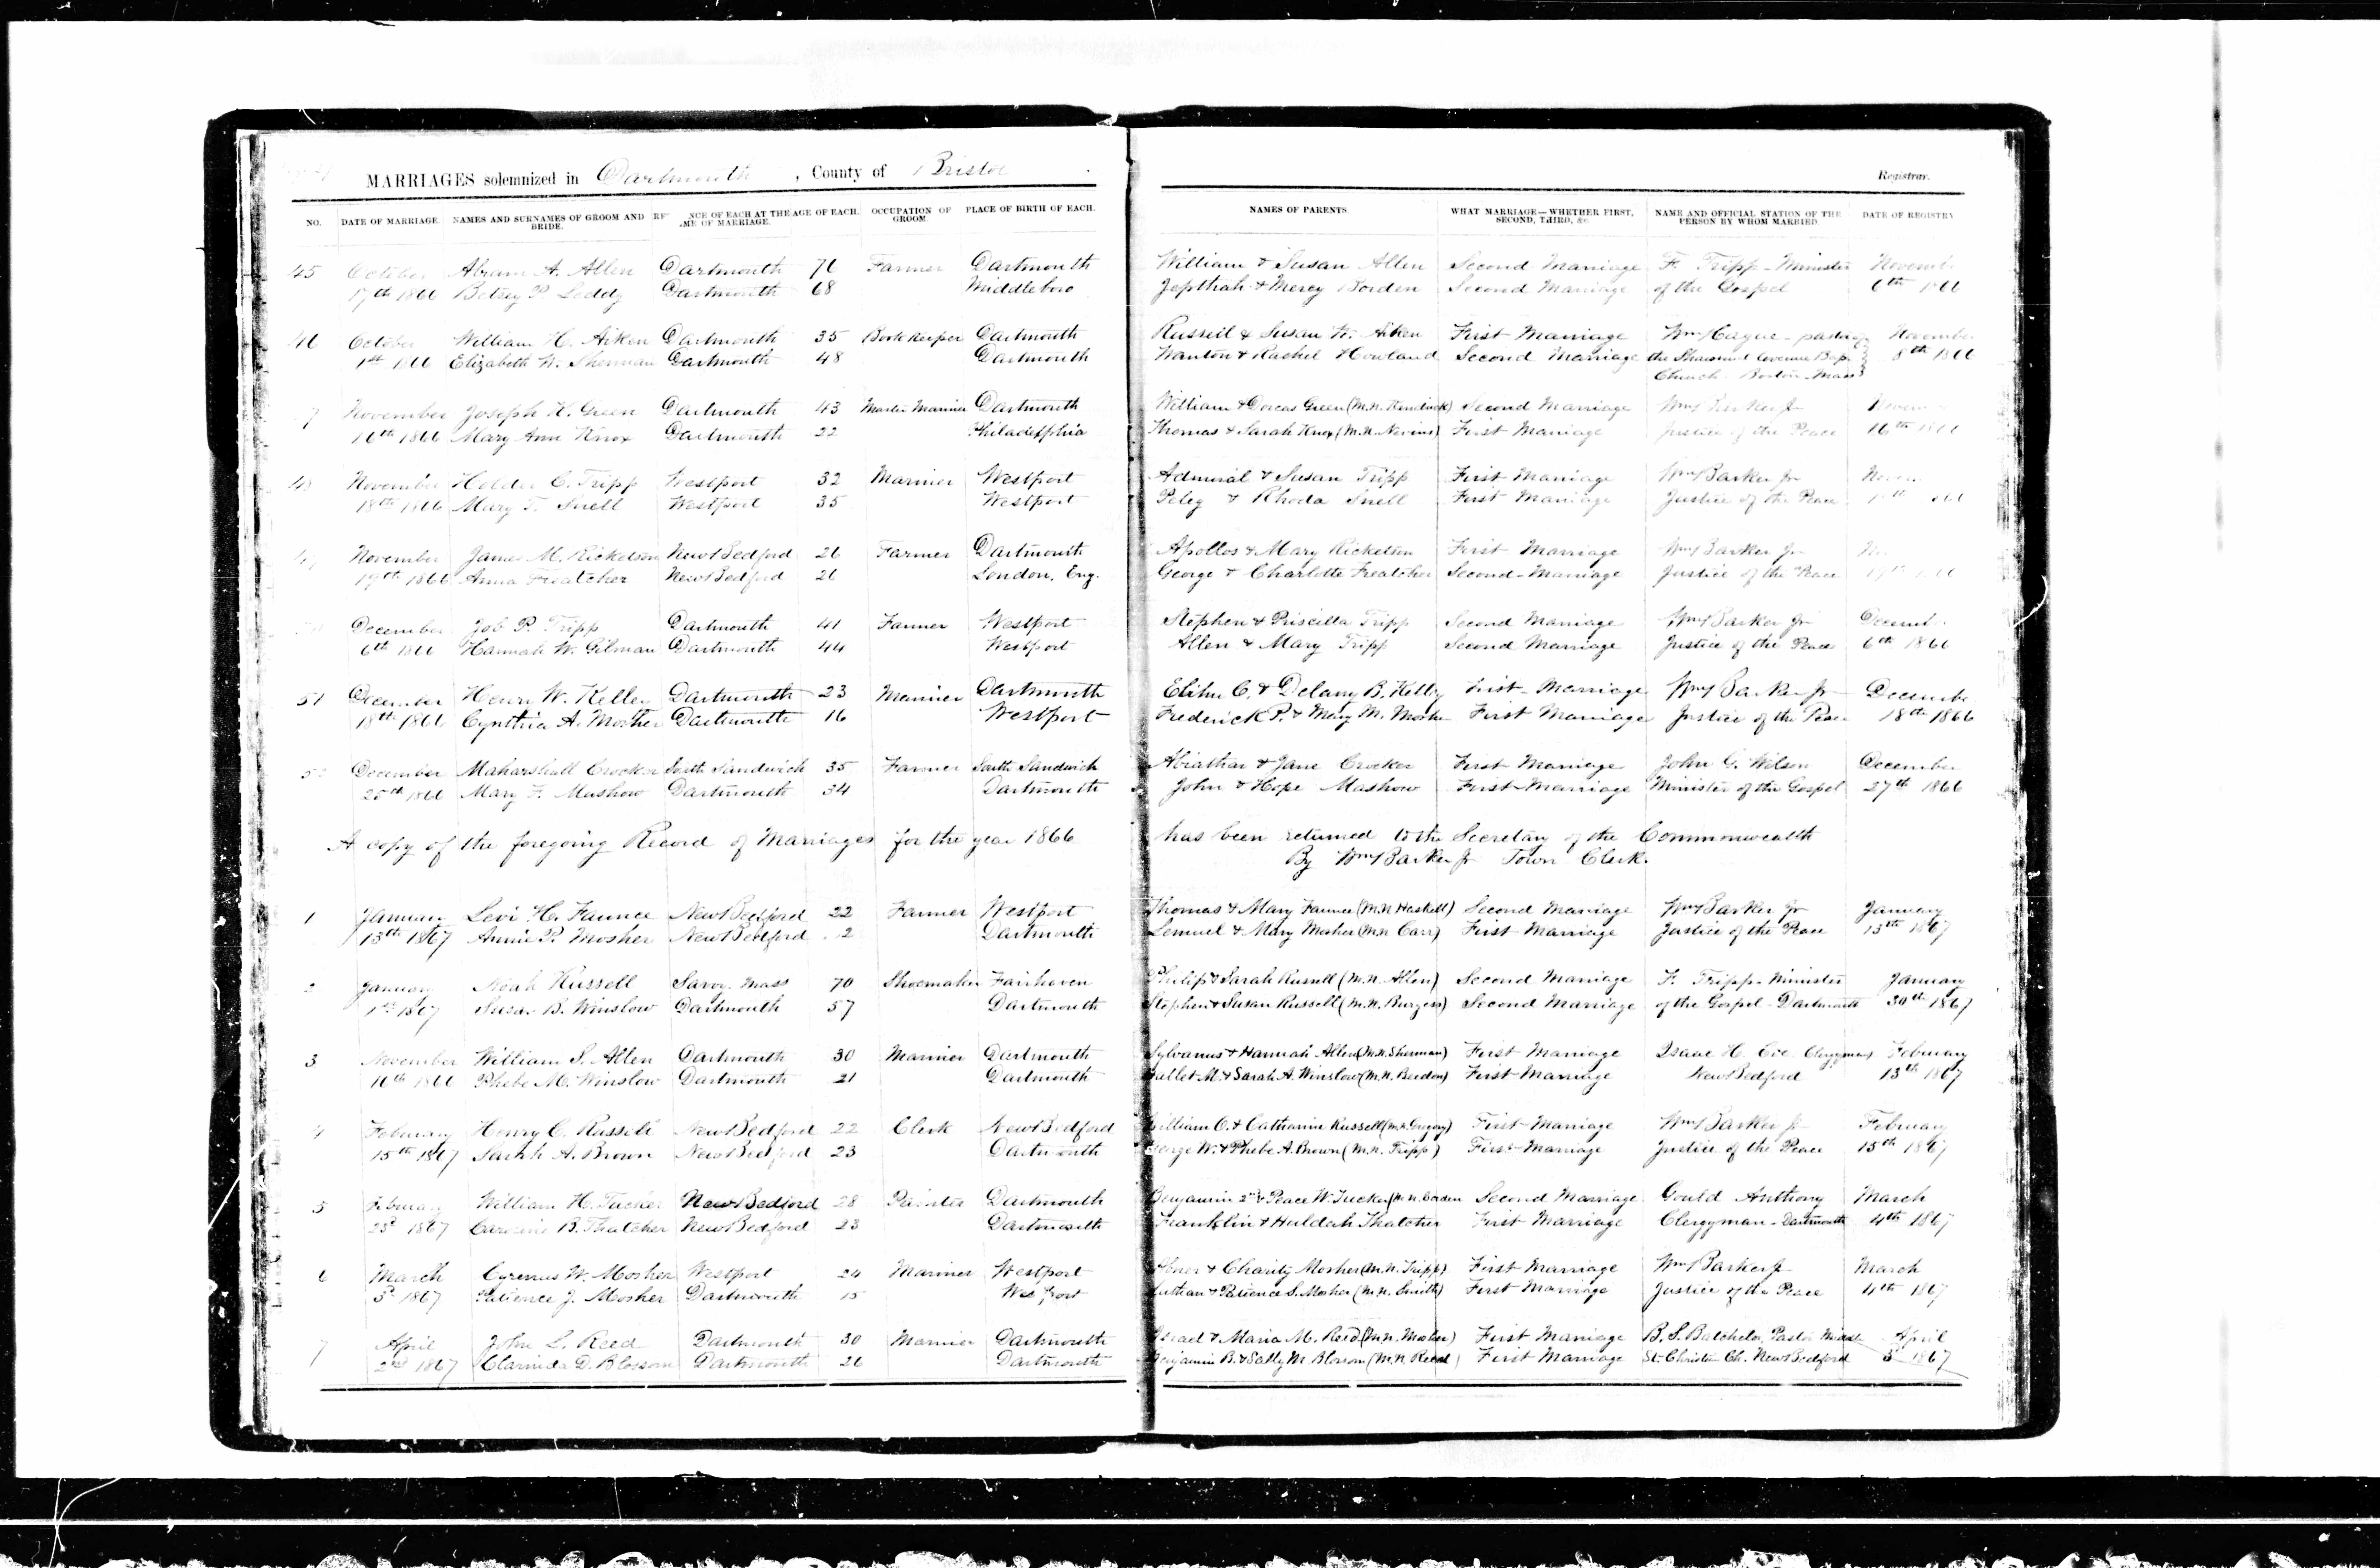 MARRIAGES solemnized in Dartmouth, County of Bristol
Registrar.
NO. DATE OF MARRIAGE. NAMES AND SURNAMES OF GROOM AND BRIDE. NCE OF EACH AT THE ME OF MARRIAGE. AGE OF EACH. OCCUPATION OF GROOM. PLACE OF BIRTH OF EACH. NAMES OF PARENTS. WHAT MARRIAGE—WHETHER FIRST, SECOND, THIRD, &c. NAME AND OFFICIAL STATION OF THE PERSON BY WHOM MARRIED. DATE OF REGISTRY
45 October Abram A. Allen Dartmouth 76 Farmer Dartmouth William & Susan Allen Second Marriage F. Tripp - Minister
17th 1866 Betsey P. Leddy Dartmouth 68 Middleboro Jepthah & Mercy Borden Second Marriage of the Gospel 6th 1866
46 October William H. Aiken Dartmouth 35 Book Keeper Dartmouth Russell & Susan W. Aiken First Marriage Wm Hague - pastor November
1st 1866 Elizabeth W. Sherman Dartmouth 48 Dartmouth Wanton & Rachel Howland Second Marriage the Shawmut Avenue Bap. 8th 1866
Church. Boston. Mass
7 November Joseph K. Green Dartmouth 43 Master Mariner Dartmouth William & Dorcas Green (M.N. Kendrick) Second Marriage Wm Barker Jr
16th 1866 Mary Ann Knox Dartmouth 22 Philadelphia Thomas & Sarah Knox (M.N. Nevins) First Marriage Justice of the Peace 16th 1866
48 November Holder C. Tripp Westport 32 Mariner Westport Admiral & Susan Tripp First Marriage Wm Barker Jr
18th 1866 Mary T. Snell Westport 35 Westport Peleg & Rhoda Snell First Marriage Justice of the Peace
November James M. Ricketson New Bedford 26 Farmer Dartmouth Apollos & Mary Ricketson First Marriage Wm Barker Jr
19th 1866 Anna Freatcher New Bedford 26 London, Eng. George & Charlotte Freatcher Second-Marriage Justice of the Peace
December Job P. Tripp Dartmouth 41 Farmer Westport Stephen & Priscilla Tripp Second Marriage Wm Barker Jr
6th 1866 Hannah W. Gilman Dartmouth 44 Westport Allen & Mary Tripp Second Marriage Justice of the Peace 6th 1866
51 December Henry W. Kelley Dartmouth 23 Mariner Dartmouth Elihu C. & Delany B. Kelly First Marriage Wm Barker Jr December
18th 1866 Cynthia A. Mosher Dartmouth 16 Westport Frederick P. & Mary M. Moshe First Marriage Justice of the Peace 18th 1866
December Maharshall Crocker South Sandwich 35 Farmer South Sandwich Abiathar & Jane Crocker First Marriage John C. Wilson December
25th 1866 Mary F. Mashow Dartmouth 34 Dartmouth John & Hope Mashow First Marriage Minister of the Gospel 27th 1866
A copy of the foregoing Record of Marriages for the year 1866 has been returned to the Secretary of the Commonwealth
By Wm Barker Jr Town Clerk.
1 January Levi H. Faunce New Bedford 22 Farmer Westport Thomas & Mary Faunce (M.N Haskell) Second Marriage Wm Barker Jr January
13th 1867 Annie P. Mosher New Bedford Dartmouth Lemuel & Mary Mosher (M.N. Carr) First Marriage Justice of the Peace 13th 1867
2 January Noah Russell Savoy. Mass 70 Shoemaker Fairhaven Philip & Sarah Russell (M.N. Allen) Second Marriage F. Tripp - Minister January
1st 1867 Susan B. Winslow Dartmouth 57 Dartmouth Stephen & Susan Russell (M.N. Burgess) Second Marriage of the Gospel - Dartmouth 30th 1867
3 November William S. Allen Dartmouth 30 Mariner Dartmouth Sylvanus & Hannah Allen (M.N. Sherman) First Marriage Isaac H. Coe Clergyman February
16th 1866 Phebe M. Winslow Dartmouth 21 Dartmouth M. & Sarah A. Winslow (M.N.) First Marriage New Bedford 13th 1867
4 February Henry C. Russell New Bedford 22 Clerk New Bedford William C. & Catharine Russell (M.N. Gregory) First Marriage Wm Barker Jr February
15th 1867 Sarah A. Brown New Bedford 23 Dartmouth George W. & Phebe A. Brown (M.N. Tripp) First Marriage Justice of the Peace 15th 1867
5 February William H. Tucker New Bedford 28 Painter Dartmouth Benjamin 2nd & Peace W. Tucker (M.N. Borden Second Marriage Gould Anthony March
23d 1867 Caroline B. Thatcher New Bedford 23 Dartmouth Franklin & Huldah Thatcher First Marriage Clergyman - Dartmouth 4th 1867
6 March Cyrenus W. Mosher Westport 24 Mariner Westport Abner & Charity Mosher (M.N. Tripp) First Marriage Wm Barker Jr March
3d 1867 Patience J. Mosher Dartmouth 15 Westport & Patience S. Mosher (M.N. Smith) First Marriage Justice of the Peace 4th 1867
7 April John L. Reed Dartmouth 30 Mariner Dartmouth Israel & Maria M. Reed (M.N. Mosher) First Marriage B. S. Batchelor, Pastor Middle April
2nd 1867 Clarinda D. Blossom Dartmouth 26 Dartmouth Benjamin B. & Sally M Blossom (M.N. Reed) First Marriage St. Christian Ch. New Bedford 3d 1867